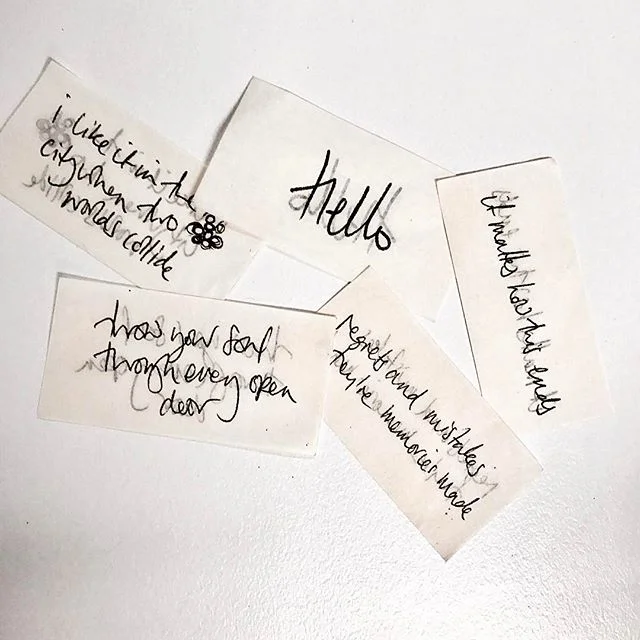 i like it in the
city when two
worlds collide
Hello
it matters how this ends
throw your soul
through every open
door
regrets and mistakes
they're memories made